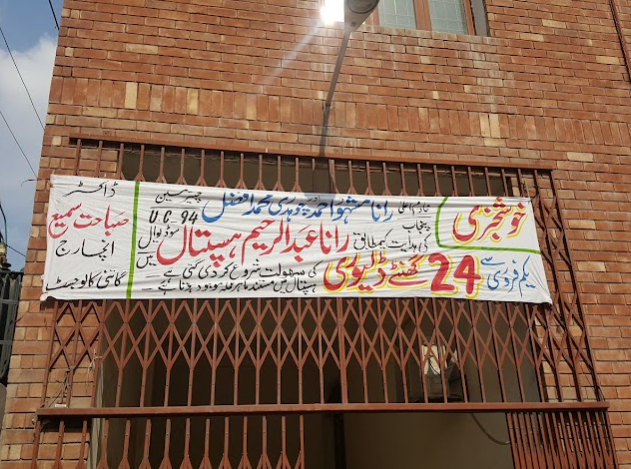 خوشخبری
خادم اعلیٰ پنجاب رانا مشہود احمد چوہدری محمد افضل چیئرمین U.C. 94
کی ہدایت کیمطابق رانا عبدالرحیم ہسپتال سوڈیوال میں
یکم فروری سے 24 گھنٹے ڈلیوری کی سہولت شروع کر دی گئی ہے
ہسپتال میں مستند ماہر عملہ موجود ہے
ڈاکٹر
صباحت سمیع
انچارج
گائنی کالوجسٹ